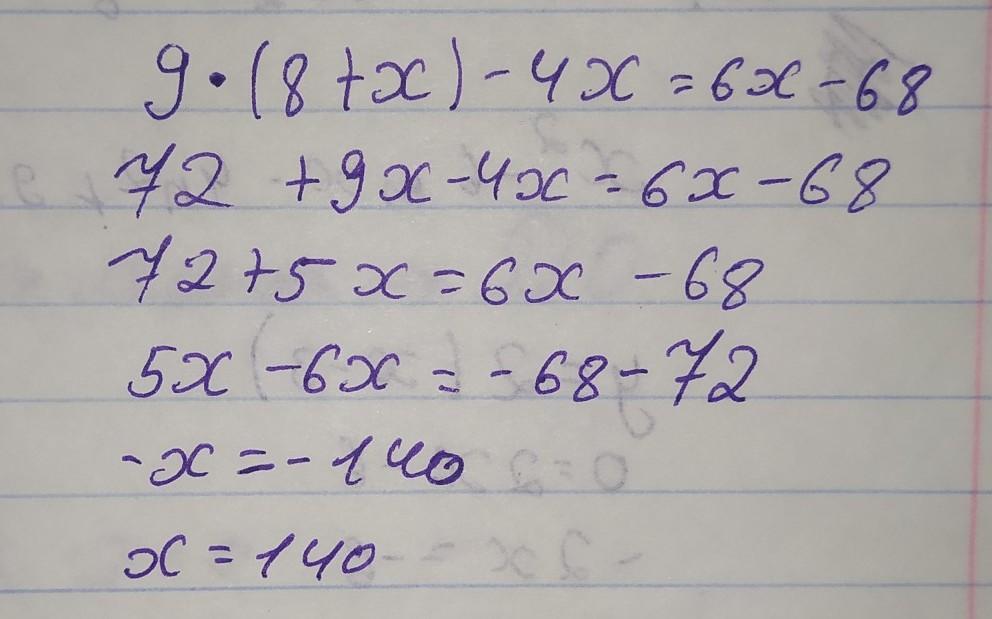 9·(8+x)-4x=6x-68
72+9x-4x=6x-68
72+5x=6x-68
5x-6x=-68-72
-x=-140
x=140